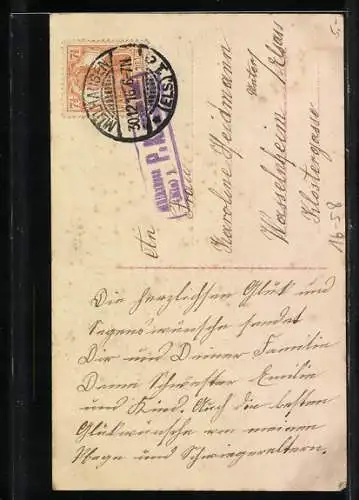 5.-
7½
MÜLHAUSEN
30.12.16. 6-7N.
* (ELS.) *
Mülhausen
(Els.)
P.K.
An
Frau
Karoline Heidmann
Wasselnheim i/Elsass
Klostergasse
16-58
Die herzlichsten Glük und
Segenswünsche sendet
Dir und Deiner Familie
Deine Schwester Emilie
und Kind. Auch die besten
Glükwünsche von meinen
und Schwiegereltern.